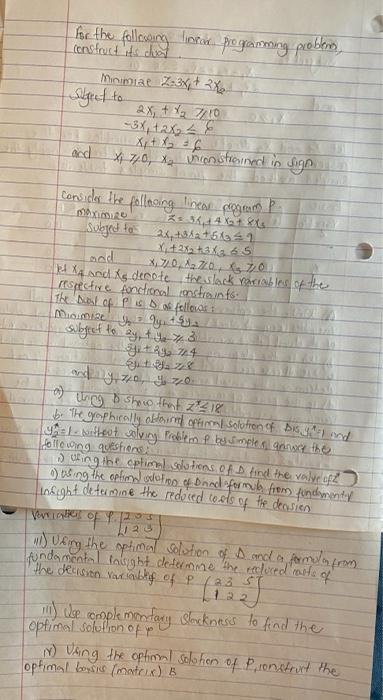 for the following linear programming problem,
construct its dual
minimize Z=3x₁+2x₂
Subject to
2x₁ + x₂ ≥10
-3x₁+2x₂ ≤ 6
x₁+x₂ = 6
and x₁≥0, x₂ unconstrained in sign
Consider the following linear program P.
maximize Z=3x₁+4x₂+8x₃
Subject to 2x₁+3x₂+5x₃≤9
x₁+2x₂+3x₃≤5
and x₁≥0, x₂≥0, x₃≥0
let x₄ and x₅ denote the slack variables of the
respective functional constraints.
The Dual of P is D as follows:
Minimize y₀ = 9y₁+5y₂
Subject to 2y₁+y₂≥3
3y₁+2y₂≥4
5y₁+3y₂≥8
and y₁≥0, y₂≥0.
a) Using D show that Z*≤18
b. The graphically obtained optimal solution of D is y₁*=1 and
y₂*=1. without solving Problem P by simplex, answer the
following questions:
i) Using the optimal solutions of D find the value of Z*
ii) Using the optimal solution of D and a formula from fundamental
insight determine the reduced costs of the decision
variables of P. [2 3 5
1 2 3]
ii) Using the optimal solution of D and a formula from
fundamental insight determine the reduced costs of
the decision variables of P [2 3 5
1 2 2]
iii) Use complementary slackness to find the
optimal solution of P
iv) Using the optimal solution of P, construct the
optimal basis (matrix) B